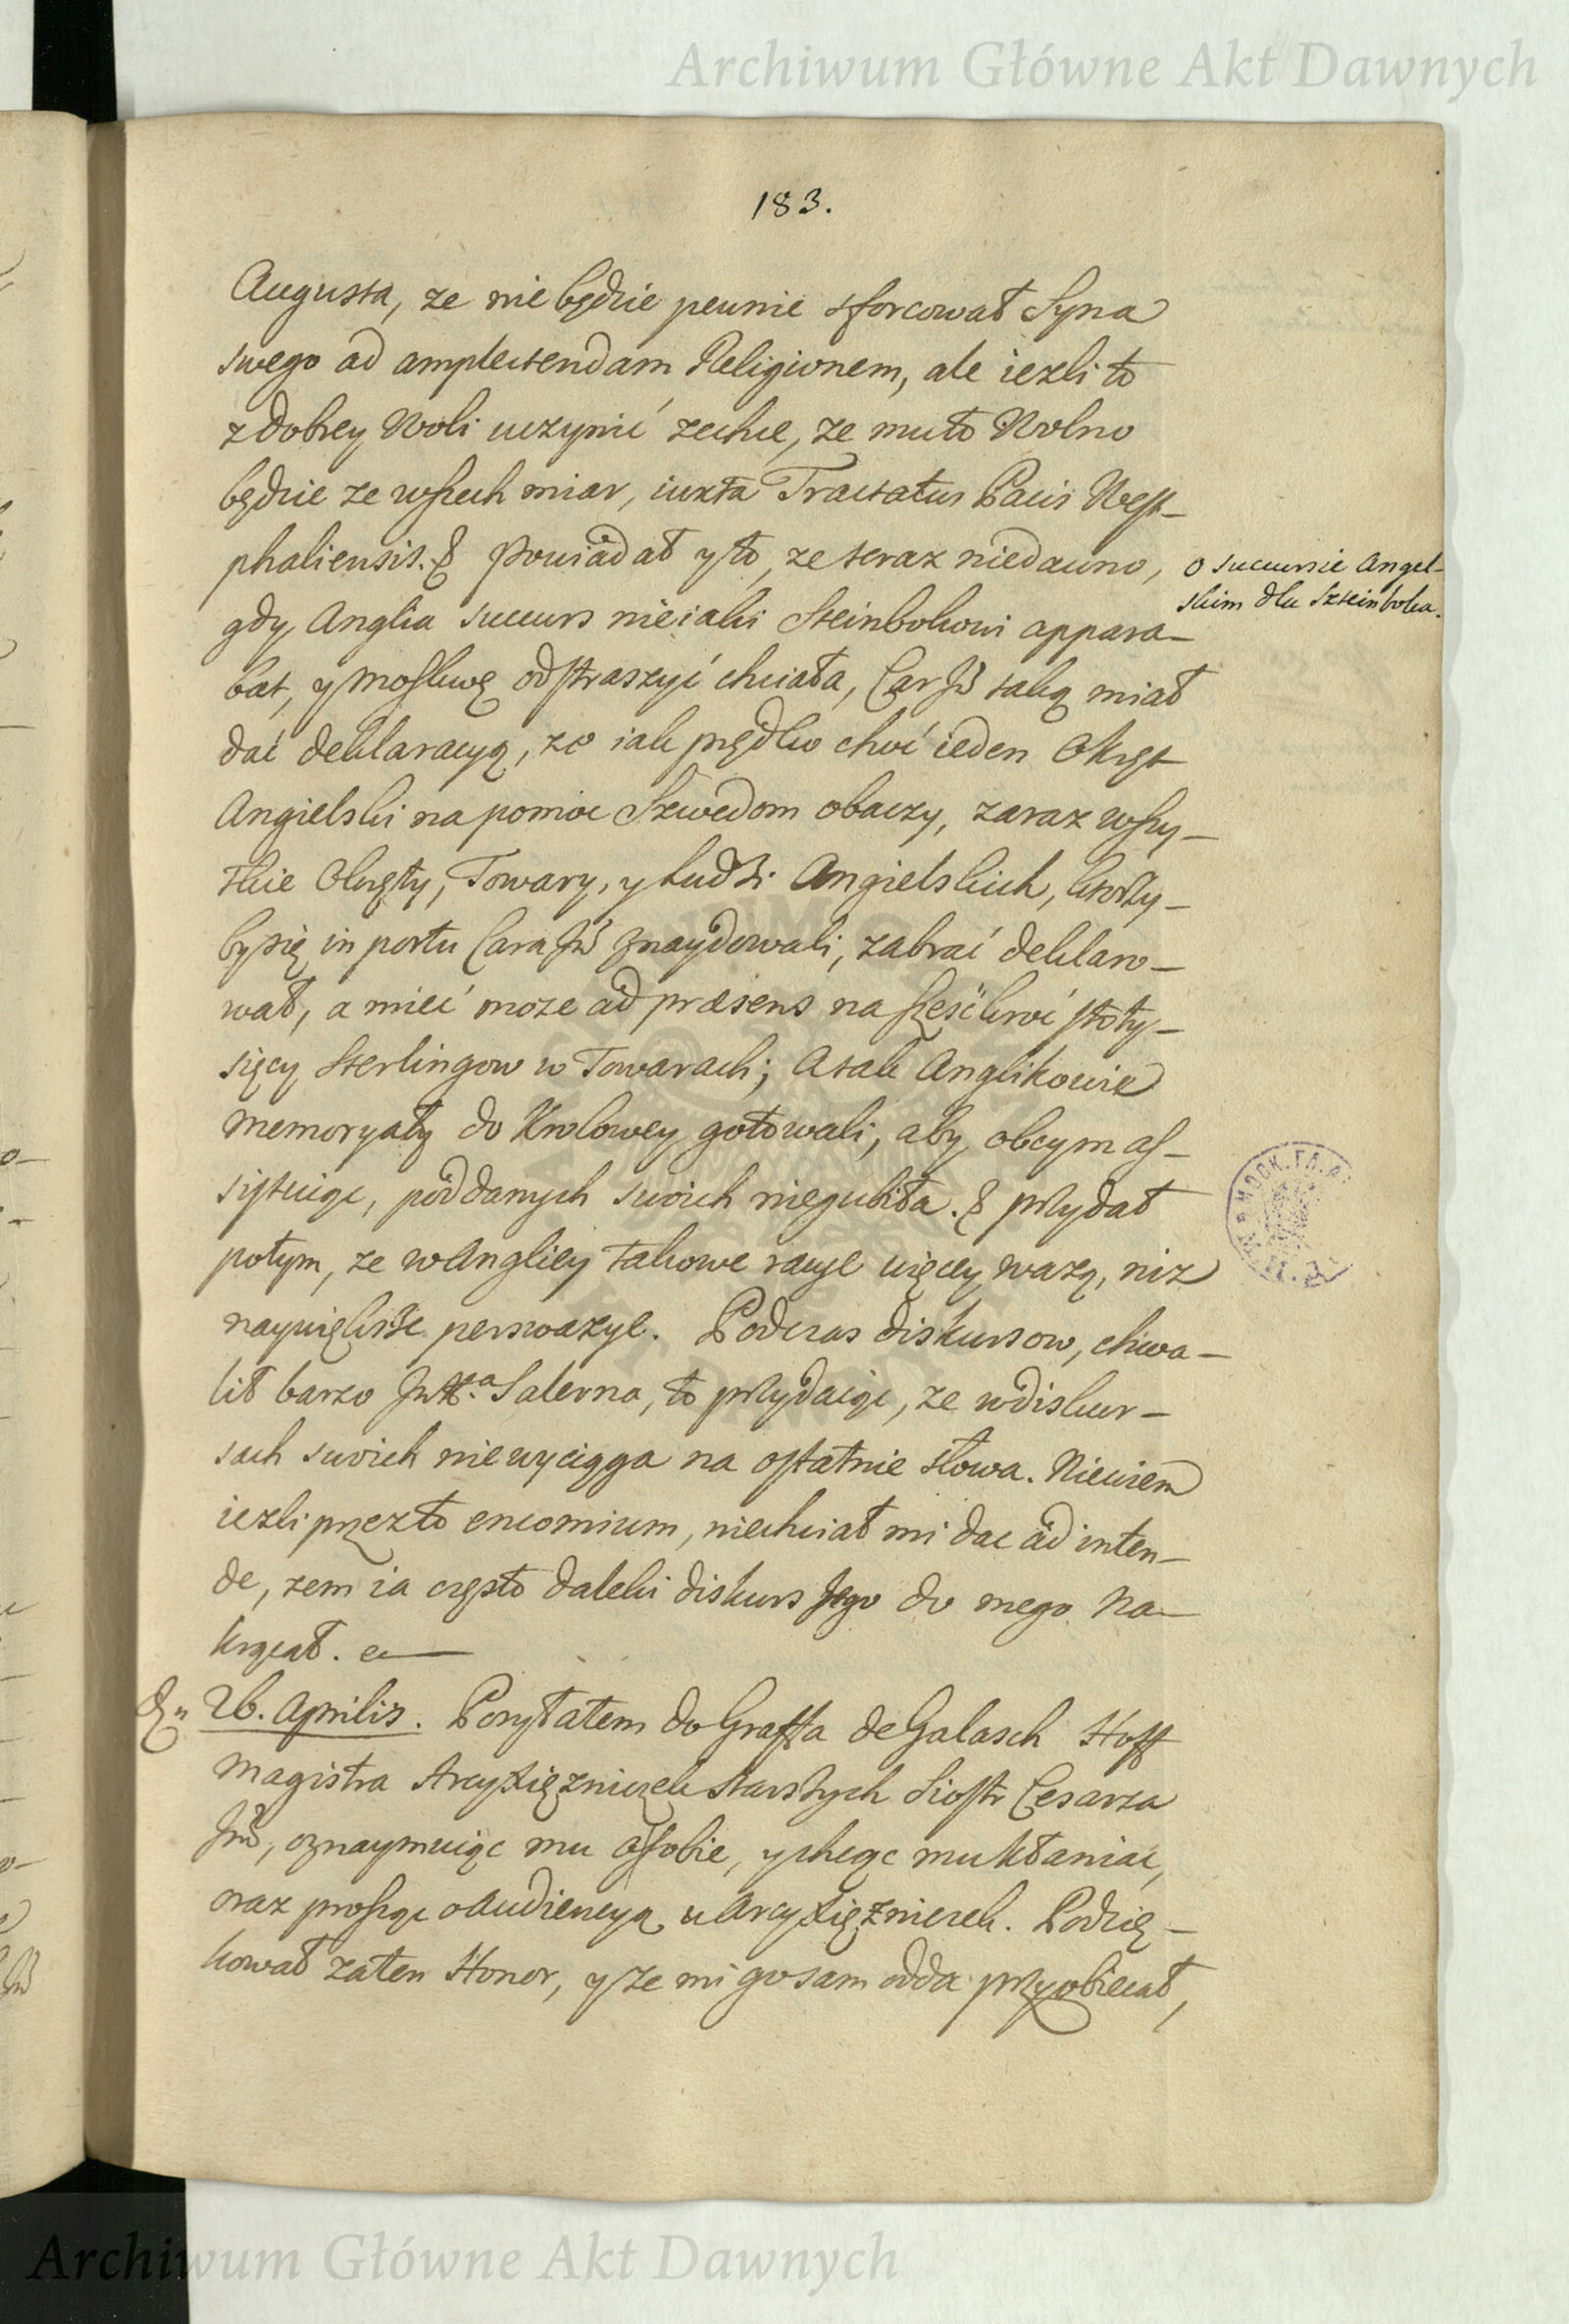 Archiwum Główne Akt Dawnych
183.
Augusta, ze nie będzie pewnie sforcował Syna
swego ad amplectendam Religionem, ale iezli to
z dobrey Woli uczynić zechce, ze mu to Wolno
będzie ze wszech miar, iuxta Tractatus Pacis West-
phaliensis. & Powiadał y to, ze teraz niedawno,
o succursie Angel-
skim dla Szteinboka.
gdy Anglia succurs nieiaki Steinbokowi appara-
bat, y Moskwę odstraszyć chciała, Car Jmć taką miał
dać deklaracyą, ze iak prędko choć ieden Okręt
Angielski na pomoc Szwedom obaczy, zaraz wszy-
tkie Okręty, Towary, y Ludzi Angielskich, ktorzy-
by się in portu Cara Jmć znaydowali, zabrać deklaro-
wał, a mieć moze ad præsens na sześćkroć sto ty-
sięcy Sterlingow w Towarach; A tak Anglikowie
memoryały do Krolowey gotowali, aby obcym as-
sistuiąc, poddanych swoich niegubiła. & przydał
potym, ze w Angliey takowe racye więcey wazą, niz
naywiększe perswazye. Podczas diskursow, chwa-
lił barzo Salerna, to przydaiąc, ze w diskur-
sach swoich nie wyciąga na ostatnie słowa. Niewiem
iezli przez to encomium, niechciał mi dac ad inten-
de, zem ia często daleki diskurs Jego do mego Na-
kręcał.
26. Aprilis. Posyłałem do Graffa de Galasch Hoff
Magistra Arcyxięzniczek starszych Siostr Cesarza
Jmć, oznaymuiąc mu o sobie, y chcąc mu kłaniać,
oraz prosząc o Audiencyą u Arcyxięzniczek. Podzię-
kował za ten Honor, y ze mi go sam odda przyobiecał,
Archiwum Główne Akt Dawnych